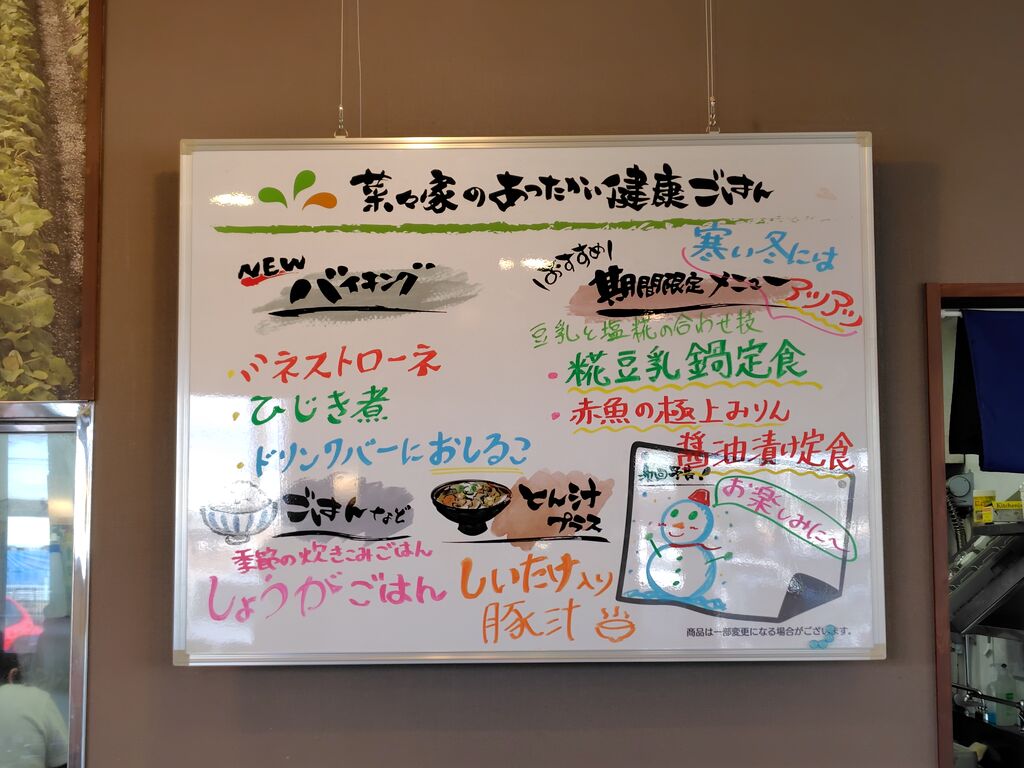 菜々家のあったかい健康ごはん
NEW
バイキング
ミネストローネ
ひじき煮
ドリンクバーにおしるこ
おすすめ!
期間限定メニュー
寒い冬には
アツアツ
豆乳と塩糀の合わせ技
糀豆乳鍋定食
赤魚の極上みりん
醤油漬け定食
ごはんなど
季節の炊きこみごはん
しょうがごはん
とん汁
プラス
しいたけ入り
豚汁
次回予告!
お楽しみに〜
商品は一部変更になる場合がございます。